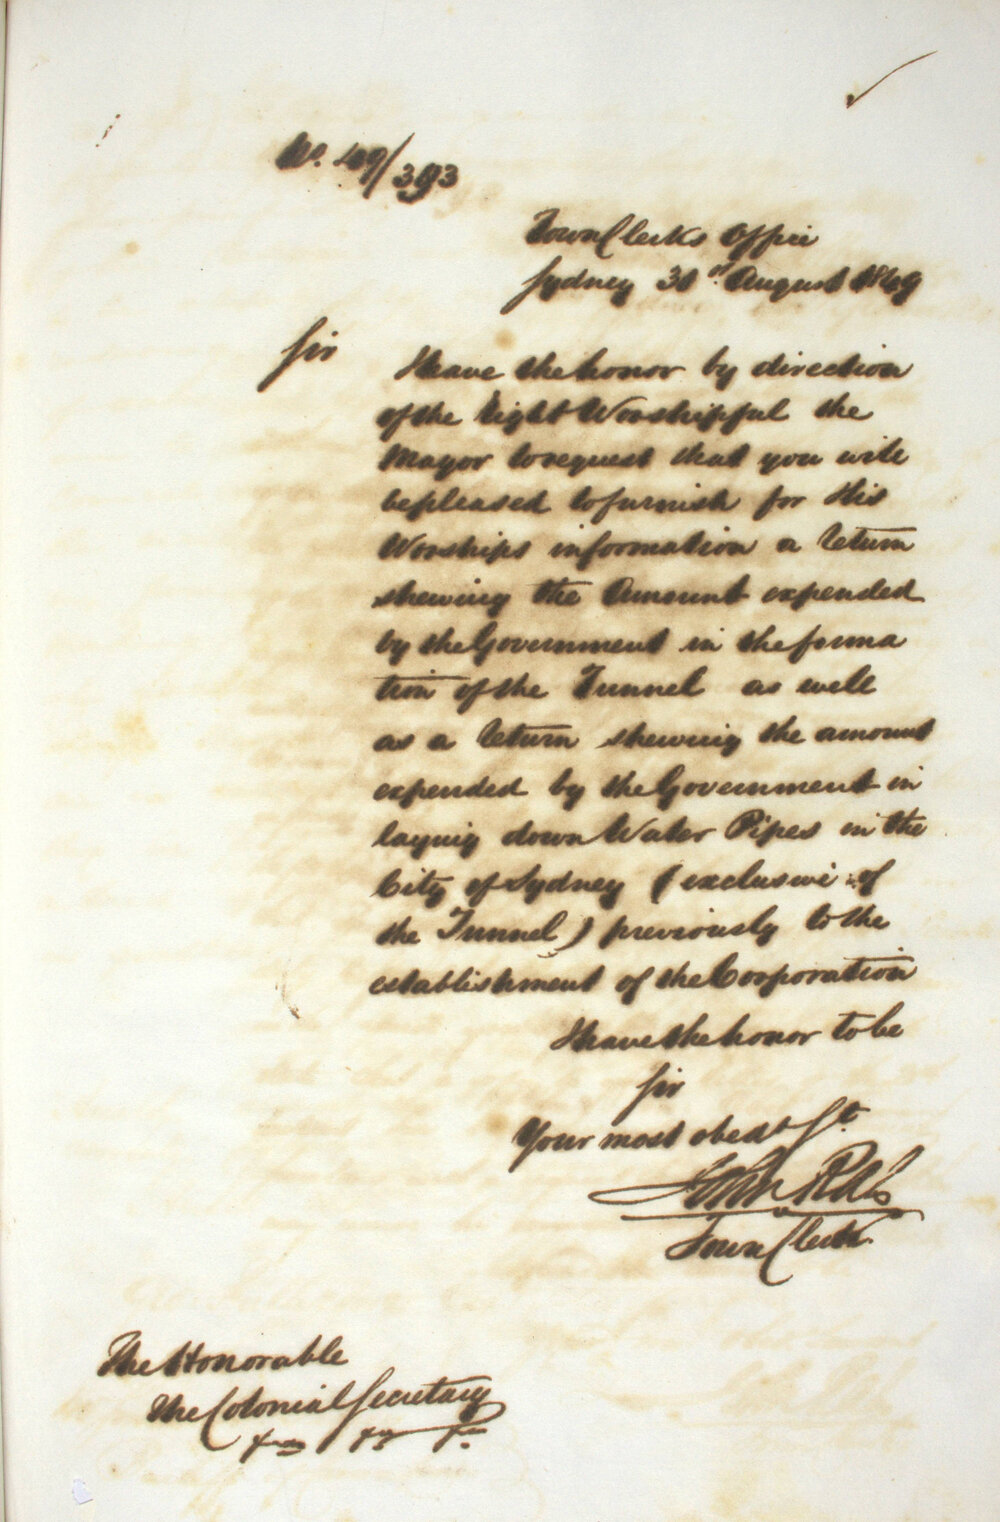 No. 49/393
Town Clerks Office
Sydney 31st August 1849
Sir
I have the honor by direction
of the Right Worshipful the
Mayor to request that you will
be pleased to furnish for His
Worships information a Return
shewing the Amount expended
by the Government in the forma
tion of the Tunnel as well
as a Return shewing the amount
expended by the Government in
laying down Water Pipes in the
City of Sydney (exclusive of
the Tunnel) previously to the
establishment of the Corporation
I have the honor to be
Sir
Your most obedt St.
John Rae
Town Clerk
The Honorable
The Colonial Secretary